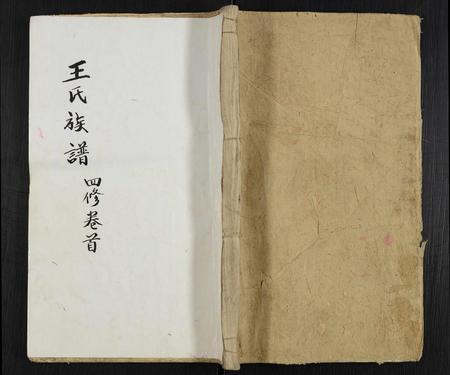 王氏族譜
四修卷首